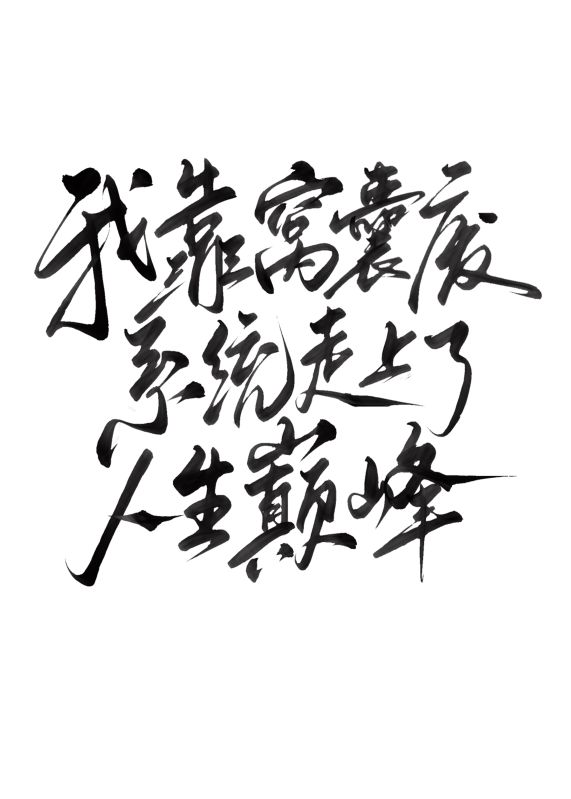 我靠窝囊废
系统走上了
人生巅峰